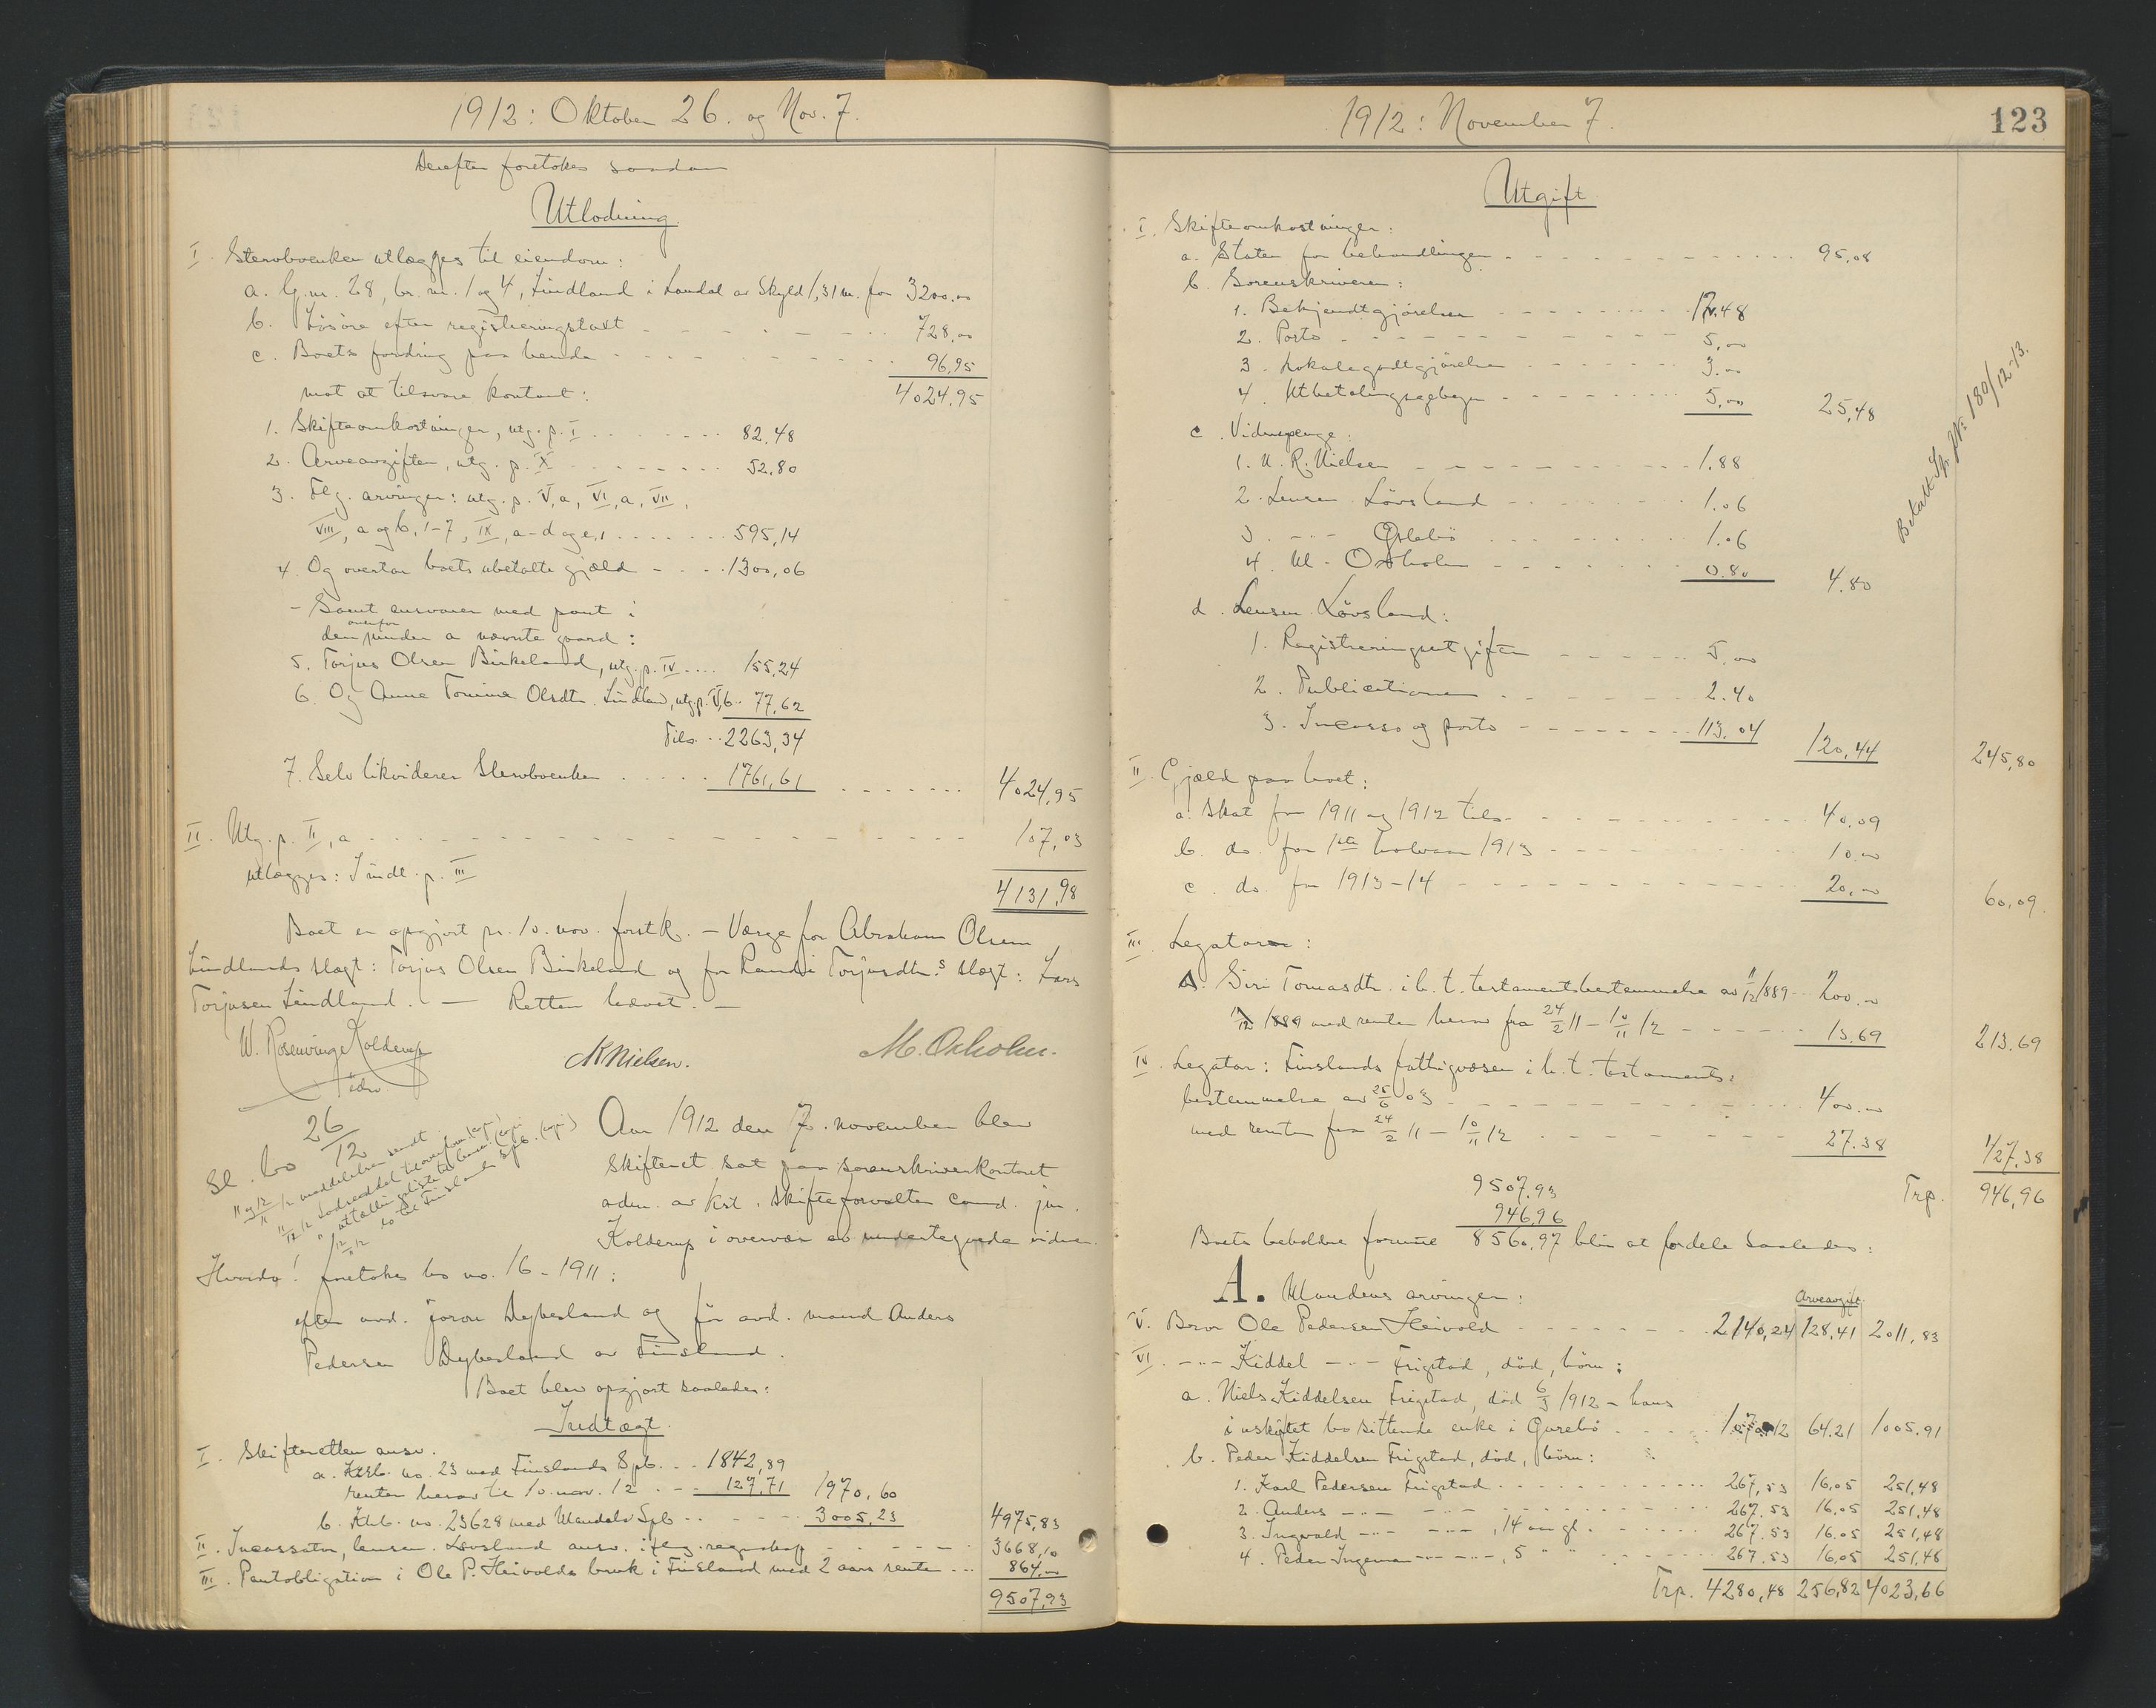 1912: Oktober 26. og Nov. 7.
Derefter foretokes saadan
Utlodning.
I. Stervboenken utlægges til eiendom:
a. G.nr. 28, br. nr. 1 og 4, Lindland i Laudal av Skyld 1,31 m. for 3200,00
b. Løsøre efter registreringstakst - - - - - 728,00
c. Boets fordring paa hende - - - - - 96,95
mot at tilsvare kontant: 4024,95
1. Skifteomkostninger, utg. p. I ........ 82,48
2. Arveavgiften, utg. p. X ........ 52,80
3. Flg. arvinger: utg. p. V,a, VI,a, VII,
VIII, a og b, 1-7, IX, a-d og e,1 ....... 595,14
4. Og overtar boets ubetalte gjæld - - - 1300,06
- Samt ansvarer med pant i
den ovenfor under a nævnte gaard:
5. Torjus Olsen Birkeland, utg. p. IV .... 155,24
6. Og Anne Tomine Olsdtr. Lindland, utg. p. V,b. 77,62
Tils. .. 2263,34
7. Selv likviderer Stervboenken ..... 1761,61 ....... 4024,95
II. Utg. p. II, a - - - - - - - - 107,03
utlægges: Indt. p. III
4131,98
Boet er opgjort pr. 10. nov. førstk. - Værge for Abraham Olsen
Lindlands slegt: Torjus Olsen Birkeland og for Randi Torjusdtr.s slegt: Lars
Torjusen Lindland. - Retten hævet. -
W. Rosenvinge Kolderup
NNielsen.
M. Oxholm.
Sl. bo 26/12
11 og 12/11 12 meddelelser sendt
Aar 1912 den 7. november blev
Skifteret sat paa sorenskriverkontoret
adm. av kst. skifteforvalter cand. jur.
Kolderup i overvær av undertegnede vidner.
Hvorda! foretokes bo no. 16 - 1911:
efter avd. Joren Dybesland og før avd. mand Anders
Pedersen Dybesland av Finsland.
Boet blev opgjort saaledes:
Indtægt.
I. Skifteretten ansv.
a. Ktrb. no. 23 med Finslands Spb. ... 1842,89
renter herav til 10. nov. 12 ... 127,71 1970,60
b. Ktrb. no. 23628 med Mandals Spb - - - 3005,23 4975,83
II. Incassator, lensm. Løvsland ansv. i flg. regnskap - - - - 3668,10
III. Pantobligation i Ole P. Heivolds bruk i Finsland med 2 aars renter ... 864,00
9507,93
1912: November 7.
123
Utgift
I. Skifteomkostninger:
a. Staten for behandlingen - - - - - - - 95,08
b. Sorenskriveren:
1. Bekjendtgjørelser - - - - - 12,48
2. Porto - - - - - 5,00
3. Lokalegodtgjørelse - - - - 3,00
4. Utbetalingsgebyr - - - - 5,00 25,48
c. Vidnepenge:
1. N. R. Nielsen - - - - - 1.88
2. Lensm. Løvsland - - - - 1.06
3. -"- Øslebø ....... 1.06
4. M. Oxholm - - - - - 0.80 4.80
d. Lensm. Løvsland:
1. Registreringsutgifter - - - - 5,00
2. Publicationer - - - - 2.40
3. Incasso og porto - - - - 113.04 120,44 245,80
Betalt Sp. No. 180/12-13.
II. Gjæld paa boet:
a. Skat for 1911 og 1912 tils. - - - - - 40,09
b. do. for 1ste halvaar 1913 - - - - 10,00
c. do. for 1913-14 - - - - - 20,00 60,09
III. Legatar:
A. Siri Tomasdtr. i h. t. testamentsbestemmelse av 11/12 1889 .. 200,00
med renter herav fra 24/2 11 - 10/11 12 - - - - 13,69 213.69
IV. Legatar: Finslands fattigvæsen i h. t. testaments-
bestemmelse av 25/6 03 - - - - - 400,00
med renter fra 24/2 11 - 10/11 12 - - - - 27.38 427,38
9507,93
946,96
Trp. 946,96
Boets beholdne formue 8560,97 blir at fordele saaledes:
A. Mandens arvinger:
Arveavgift.
V. Bror Ole Pedersen Heivold - - - - 2140,24 128,41 2011,83
VI. -"- Kiddel -"- Frigstad, død, børn:
a. Niels Kiddelsen Frigstad, død 6/3 1912 - hans
i uskiftet bo sittende enke i Øvrebø .... 1070,12 64.21 1005.91
b. Peder Kiddelsen Frigstad, død, børn:
1. Karl Pedersen Frigstad ........ 267,53 16,05 251,48
2. Anders -"- -"- ....... 267,53 16,05 251,48
3. Ingvald -"- -"-, 14 aar gl. ....... 267,53 16,05 251,48
4. Peder Ingeman -"- -"-, 5 " " ....... 267,53 16,05 251,48
Trp. 4280,48 256,82 4023,66